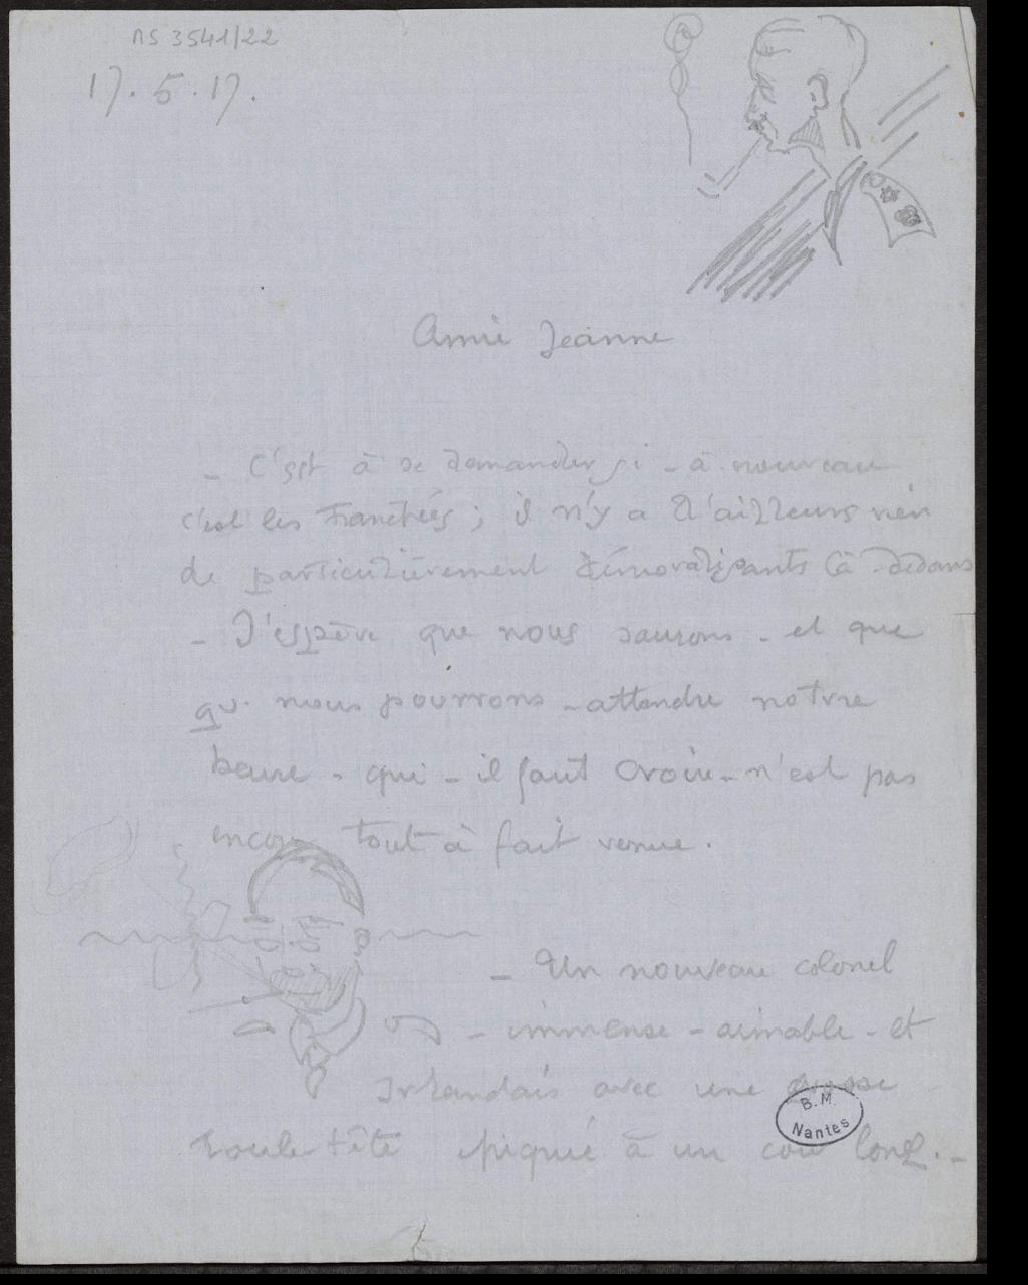 MS 3541/22
17.5.17.
Amie Jeanne
- C'est à se demander si - à nouveau
c'est les tranchées ; il n'y a d'ailleurs rien
de particulièrement démoralisants là-dedans
- J'espère que nous saurons - et que
nous pourrons - attendre notre
heure - qui - il faut croire - n'est pas
encore tout à fait venue.
- Un nouveau colonel
- immense - aimable - et
Irlandais avec une
tête piquée à un cou long. -
B.M.
Nantes